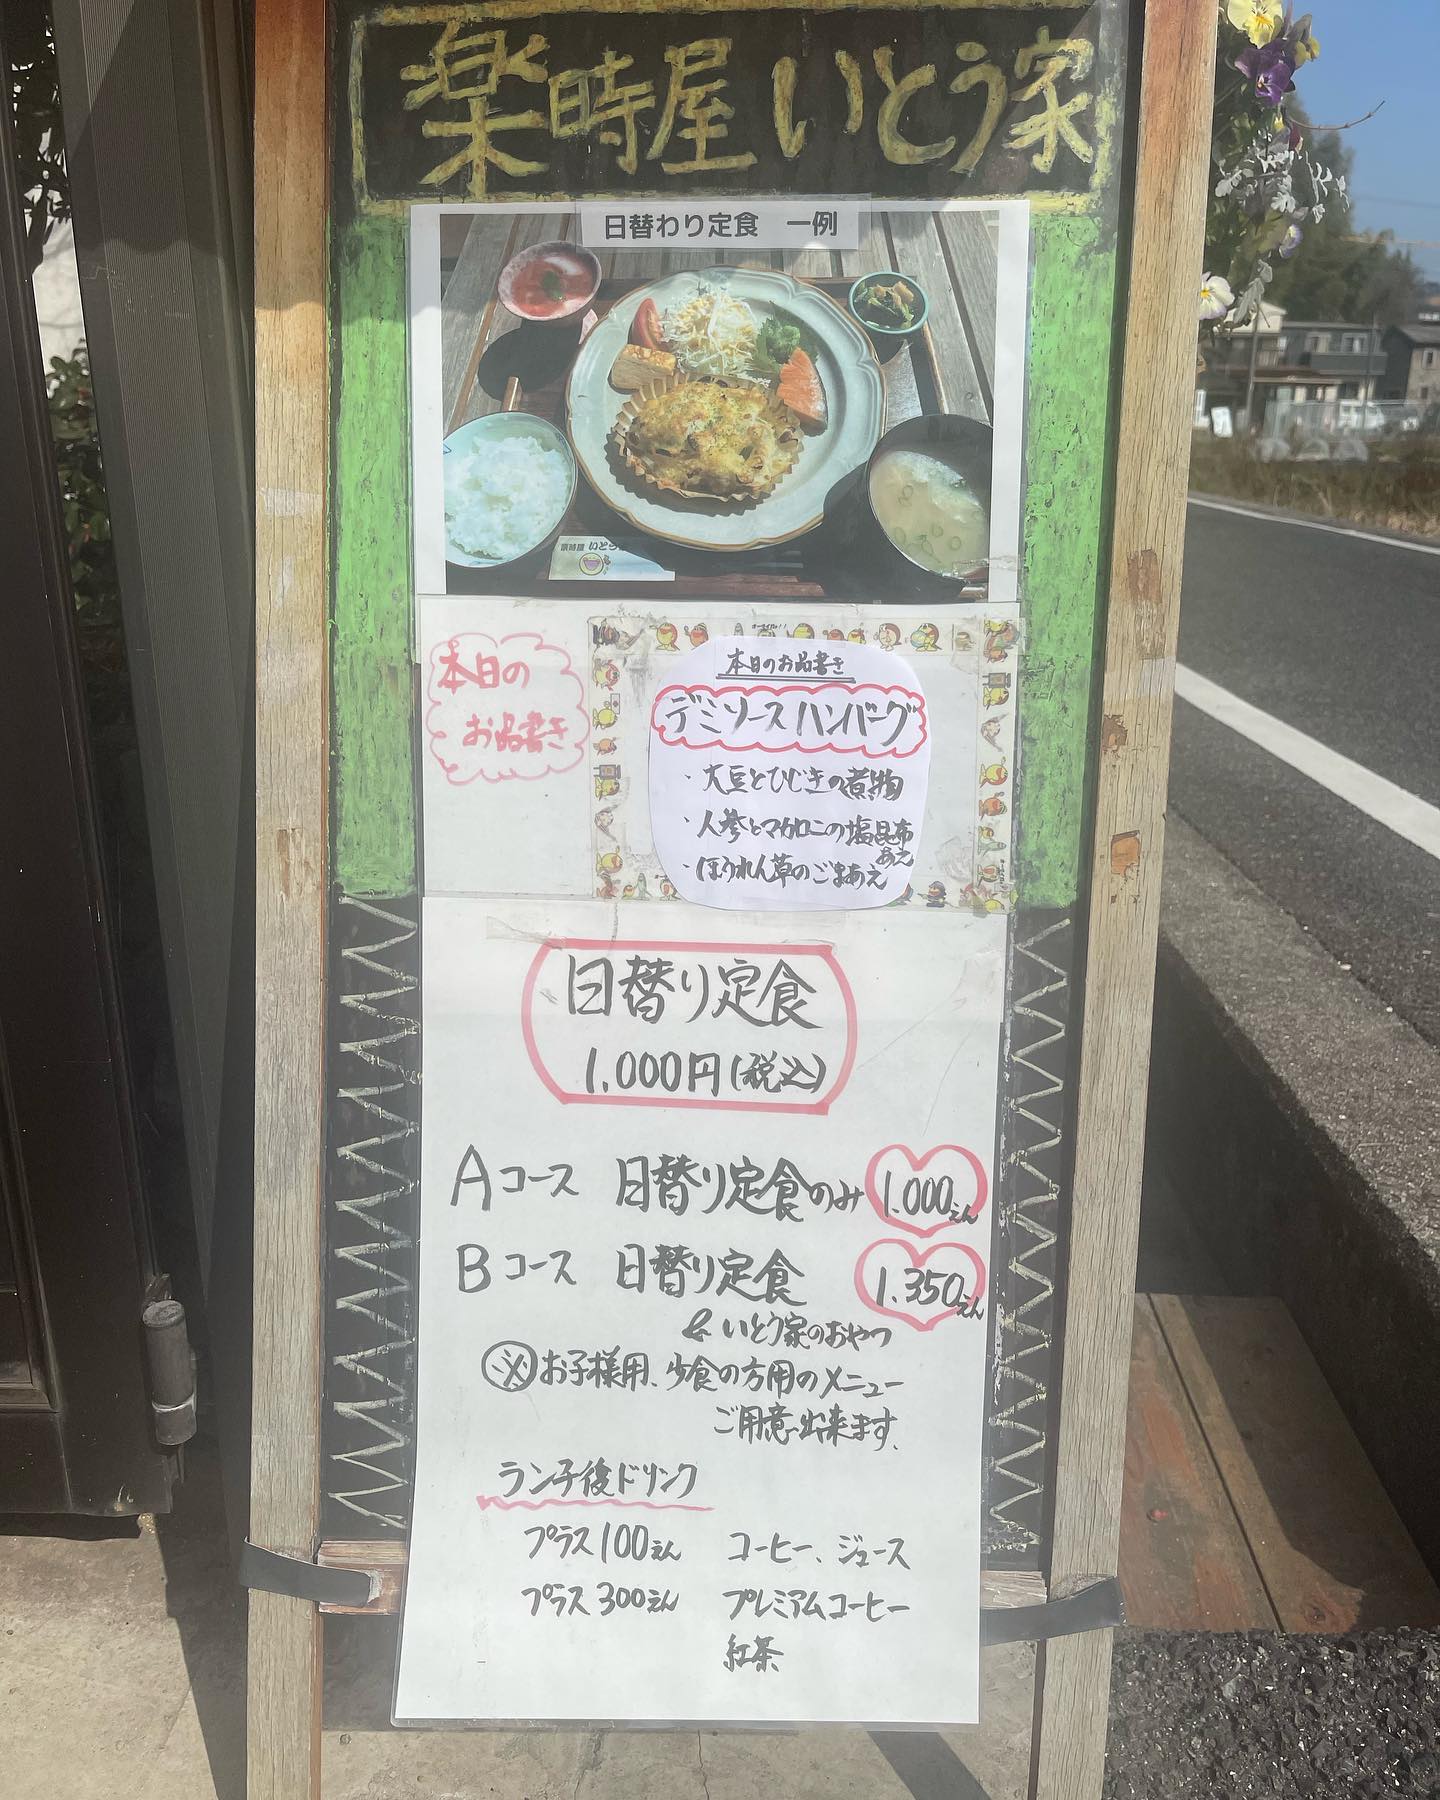 楽時屋 いとう家
日替わり定食　一例
楽時屋 いとう家
本日の
お品書き
本日のお品書き
デミソースハンバーグ
・大豆とひじきの煮物
・人参とマカロニの塩昆布
あえ
・ほうれん草のごまあえ
日替り定食
1.000円(税込)
Aコース 日替り定食のみ 1.000えん
Bコース 日替り定食 1.350えん
& いとう家のおやつ
※お子様用、少食の方用のメニュー
ご用意出来ます。
ランチ後ドリンク
プラス100えん コーヒー、ジュース
プラス300えん プレミアムコーヒー
紅茶